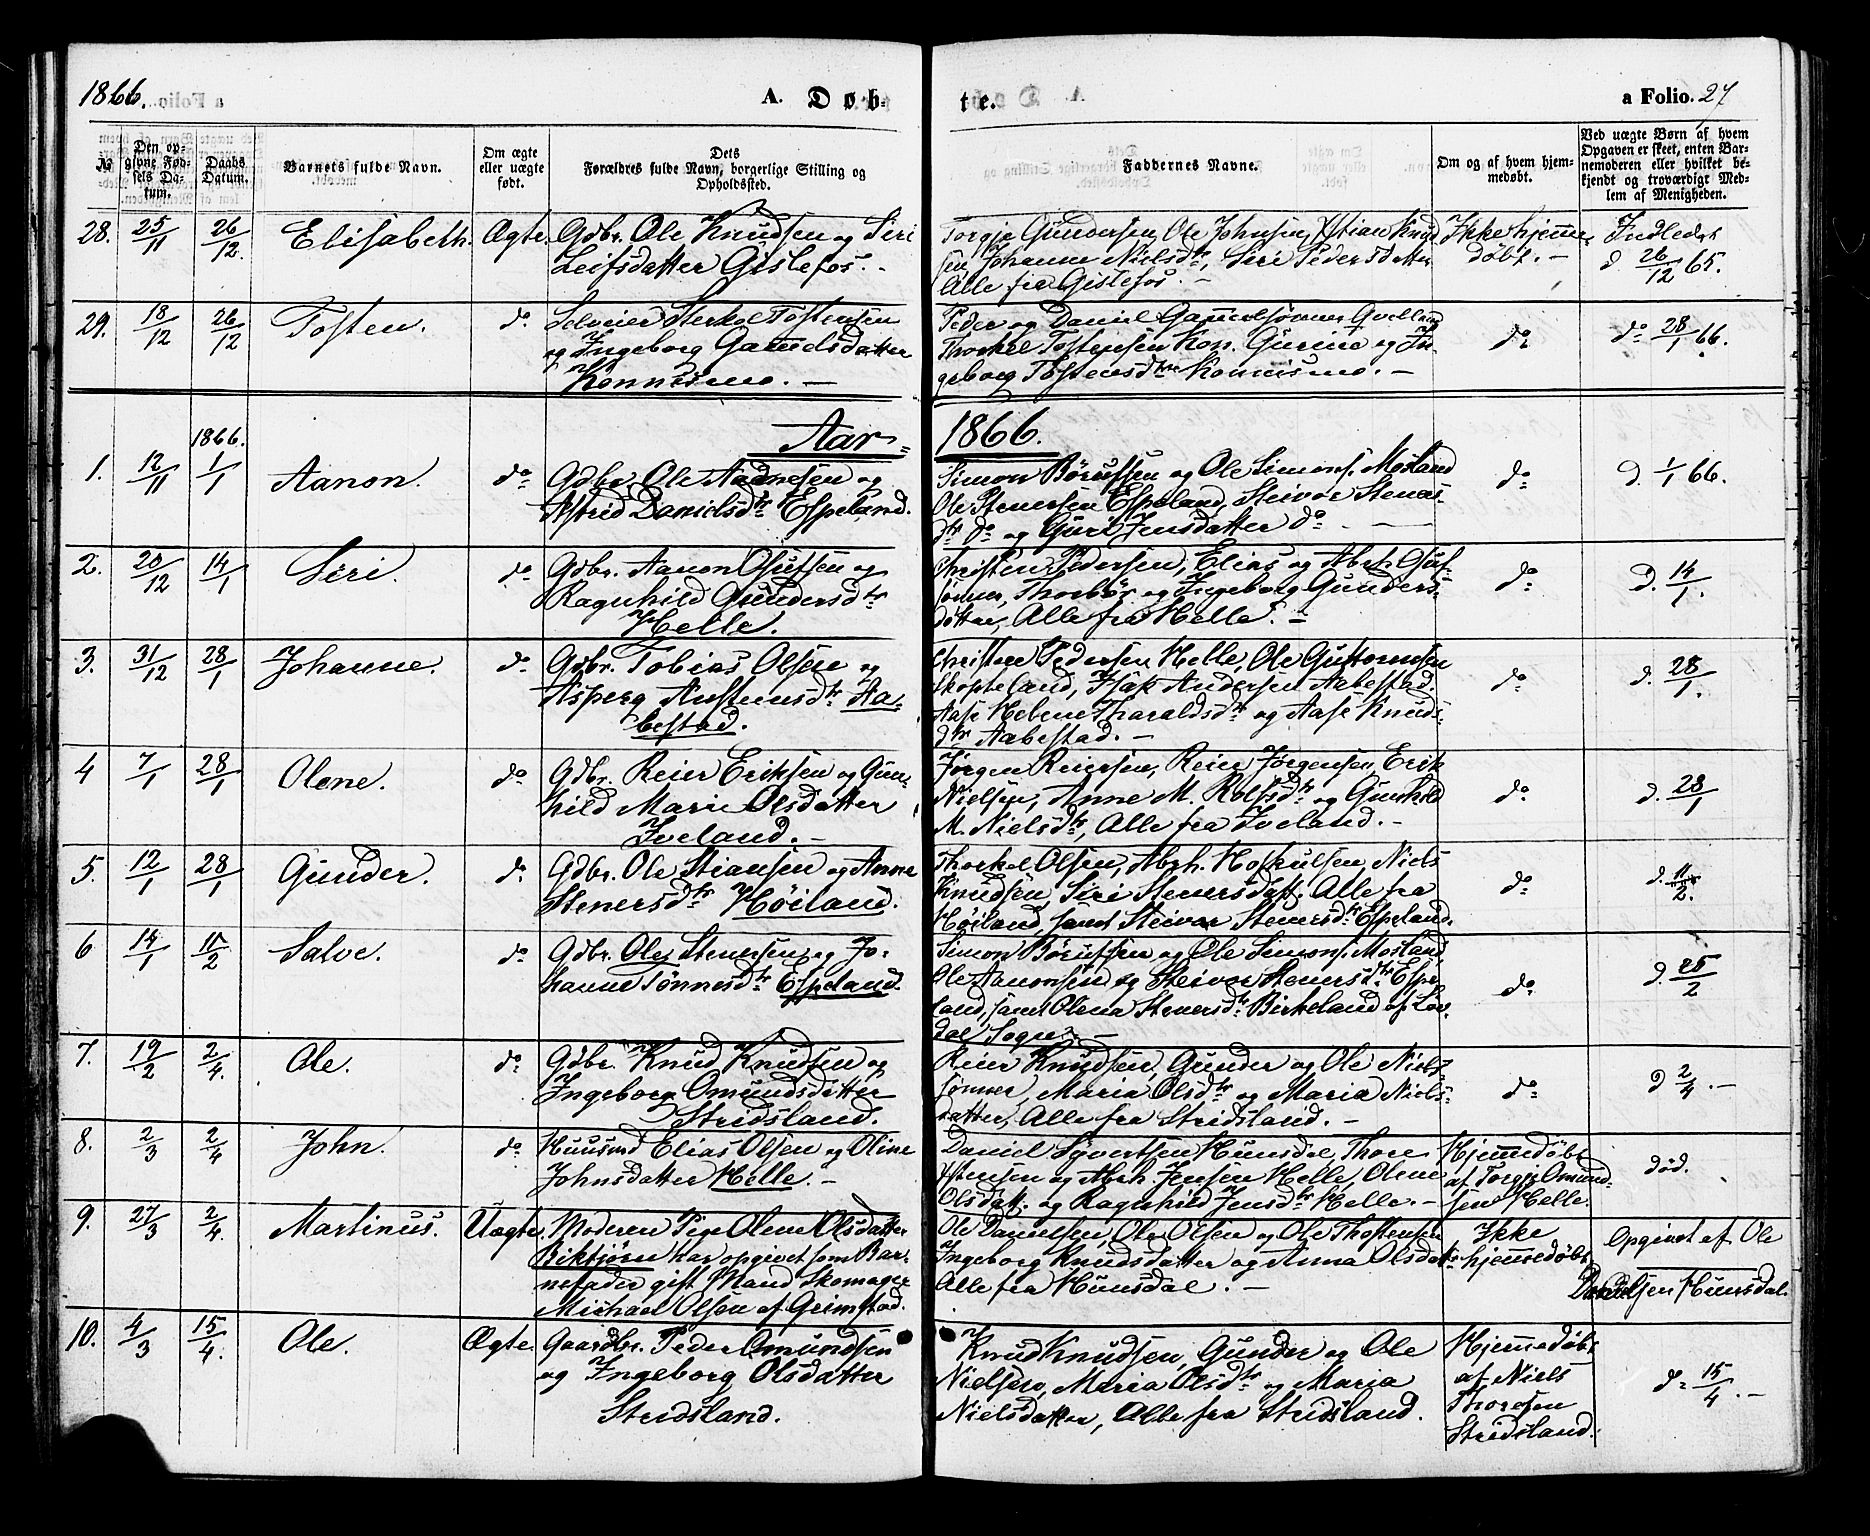 1866.
A. Døb-
te.
a Folio. 27
№
Den op-
givne Fød-
sels Da-
tum.
Daabs
Datum.
Barnets fulde Navn.
Om ægte
eller uægte
født.
Dets
Forældres fulde Navn, borgerlige Stilling og
Opholdssted.
Faddernes Navne.
Om og af hvem hjem-
medøbt.
Ved uægte Børn af hvem
Opgaven er skeet, enten Bar-
nemoderen eller hvilket be-
kjendt og troværdigt Med-
lem af Menigheden.
28. 25/11 26/12. Elisabeth. Ægte. Gdbr. Ole Knudsen og Seri
Leifsdatter Gislefos. -
Torgje Gundersen, Ole Johnsen, Stian Knud
sen, Johanne Nielsdtr, Seri Pedersdatter
Alle fra Gislefos. -
Ikke hjemme
døbt. -
Indledet
d 26/12 65.
29. 18/12 26/12 Tosten. do Selveier Terkel Tostensen
og Ingeborg Gamelsdatter
Konnismo. -
Peder og Daniel Gamelsønner
Thorkel Tostensen Kon. Gurine og In-
geborg Tostensdtre Konnismo. -
do
do 28/1 66.
Aar 1866.
1866.
1. 12/11 1/1 Aanon. do Gdbr. Ole Aadnesen og
Astrid Danielsdtr Espeland.
Simon Børufsen og Ole Simons. Mosland
Ole Stenersen Espeland, Steivor Steners-
dtr do og Guri Jensdatter do
do
d. 1/1 66.
2. 20/12 14/1 Seri. do Gdbr. Aanon Olufsen og
Ragnhild Gundersdtr
Helle.
Christen Pedersen, Elias og Abrh. Ol
sønner, Thorbør og Ingeborg Gunders-
døttre, Alle fra Helle. -
do
d. 14/1.
3. 31/12 28/1 Johanne. do Gdbr. Tobias Olsen og
Asperg Austensdtr Aa-
bestad.
Christen Pedersen Helle, Ole Guttormsen
Skopteland, Isak Andersen Aabestad.
Aase Helene Tharaldsdtr og Aase Knuds-
dtr Aabestad. -
do
d. 28/1.
4 7/1 28/1 Olene. do Gdbr. Reier Eriksen og Gun-
hild Marie Olsdatter
Iveland. -
Jørgen Reiersen, Reier Jørgensen, Erik
Nielsen, Anne M. Rolfsdtr og Gunhild
M. Nielsdtr, Alle fra Iveland. -
do
d. 28/1
5. 12/1 28/1 Gunder. do Gdbr. Ole Stiansen og Anne
Stenersdtr Høiland.
Thorkel Olsen, Abrh. Hoskulsen, Niels
Knudsen, Siri Stenersdatt. Alle fra
Høiland, samt Steivor Stenersdtr Espeland.
do
d. 11/2.
6 14/1 11/2 Salve. do Gdbr. Ole Stenersen og Jo-
hanne Tønnesdtr Espeland.
Simon Børufsen og Ole Simons. Mosland,
Ole Aanonsen og Steivor Stenersdtr Espe
land, samt Olena Stenersdtr Birkeland af Lav-
dal Sogn. -
do
d. 25/2
7. 19/2 2/4. Ole. do Gdbr. Knud Knudsen og
Ingeborg Omundsdatter
Stridsland.
Reier Knudsen, Gunder og Ole Niels-
sønner, Maria Olsdtr og Maria Niels-
datter, Alle fra Stridsland. -
do
d 2/4. -
8. 2/3 2/4 John. do Huusmd Elias Olsen og Oline
Johnsdatter Helle. -
Daniel Syvertsen Hunsdal, Thore
Ostensen og Abrh. Jensen Helle, Olene
Olsdatt. og Ragnhild Jensdtr Helle. -
Hjemmedøbt
af Torgje Omund-
sen Helle.
død.
9. 27/3 2/4. Martinus. Uægte. Moderen Pige Olene Olsdatter
Birktjøn har opgivet som Bar-
nefader gift Mand Skomager
Michael Olsen af Grimstad.
Ole Danielsen, Ole Olsen og Ole Thostensen
Ingeborg Knudsdatter og Anna Olsdatr
Alle fra Hunsdal. -
Ikke
hjemmedøbt
Opgivet af Ole
Danielsen Hunsdal.
10. 4/3 15/4. Ole. Ægte Gaardbr. Peder Omundsen
og Ingeborg Olsdatter
Stridsland.
Knud Knudsen, Gunder og Ole
Nielsen, Maria Olsdtr og Maria
Nielsdatter, Alle fra Stridsland.
Hjemmedøbt
af Niels
Thorsen
Stridsland.
d. 15/4. -